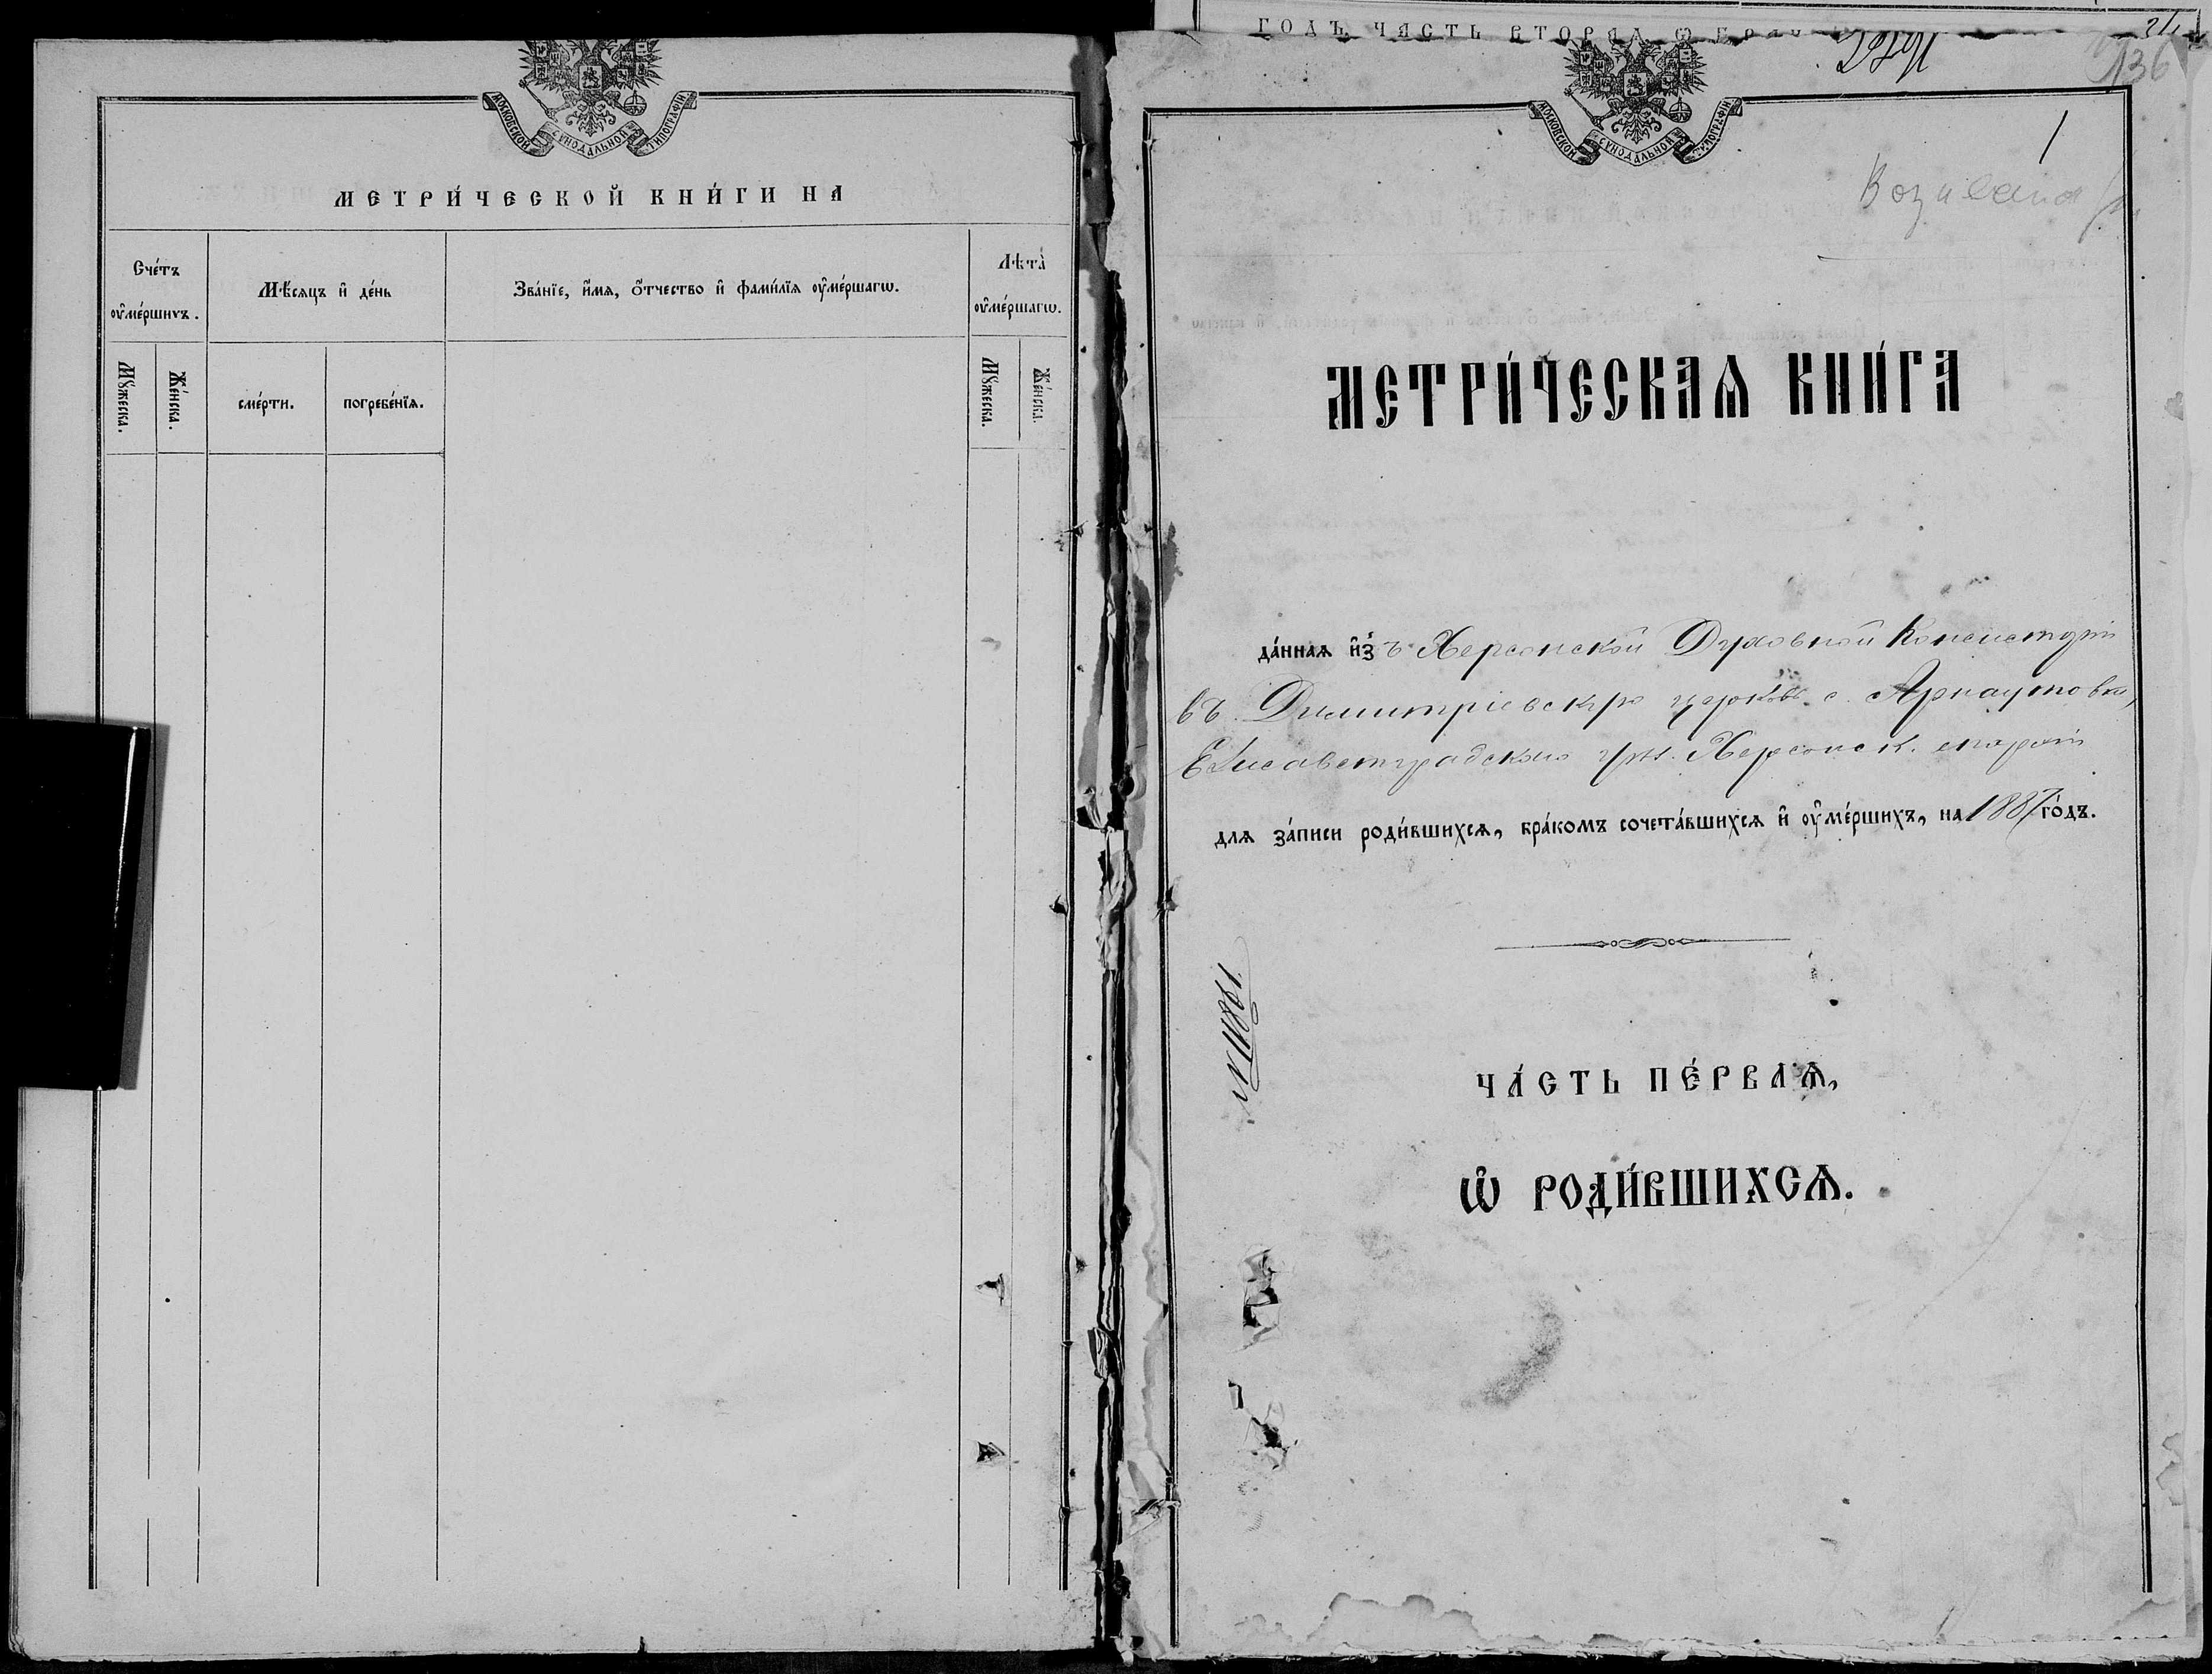 МОСКОВСКОЙ СѴНОДАЛЬНОЙ ТИПОГРАФІИ
МЕТРИ́ЧЕСКОЙ КНИ́ГИ НА
Сче́тъ ᲂу҆ме́ршихъ.
Мѣ́сяцъ и҆ де́нь
Зва́нїе, и҆́мѧ, ѻ҆́тчество и҆ фами́лїѧ ᲂу҆ме́ршагѡ.
Лѣта̀ ᲂу҆ме́ршагѡ.
Мꙋ́жеска.
Же́нска.
сме́рти.
погребе́нїѧ.
Мꙋ́жеска.
Же́нска.
ГОДЪ ЧАСТЬ ВТОРАЯ Ѡ
136
МОСКОВСКОЙ СѴНОДАЛЬНОЙ ТИПОГРАФІИ
1
МЕТРИ́ЧЕСКАѦ КНИ́ГА
да́ннаѧ и҆з̾ ъ Херсонской Духовной Консисторіи
въ Димитріевскую церковь с. Арнаутовки,
Елисаветградскаго уѣз. Херсонск. епархіи
длѧ за́писи роди́вшихсѧ, бра́комъ сочета́вшихсѧ и҆ ᲂу҆ме́ршихъ, на 1887 го́дъ.
№ 11861.
ЧА́СТЬ ПЕ́РВАѦ,
Ѡ҆ РОДИ́ВШИХСѦ.